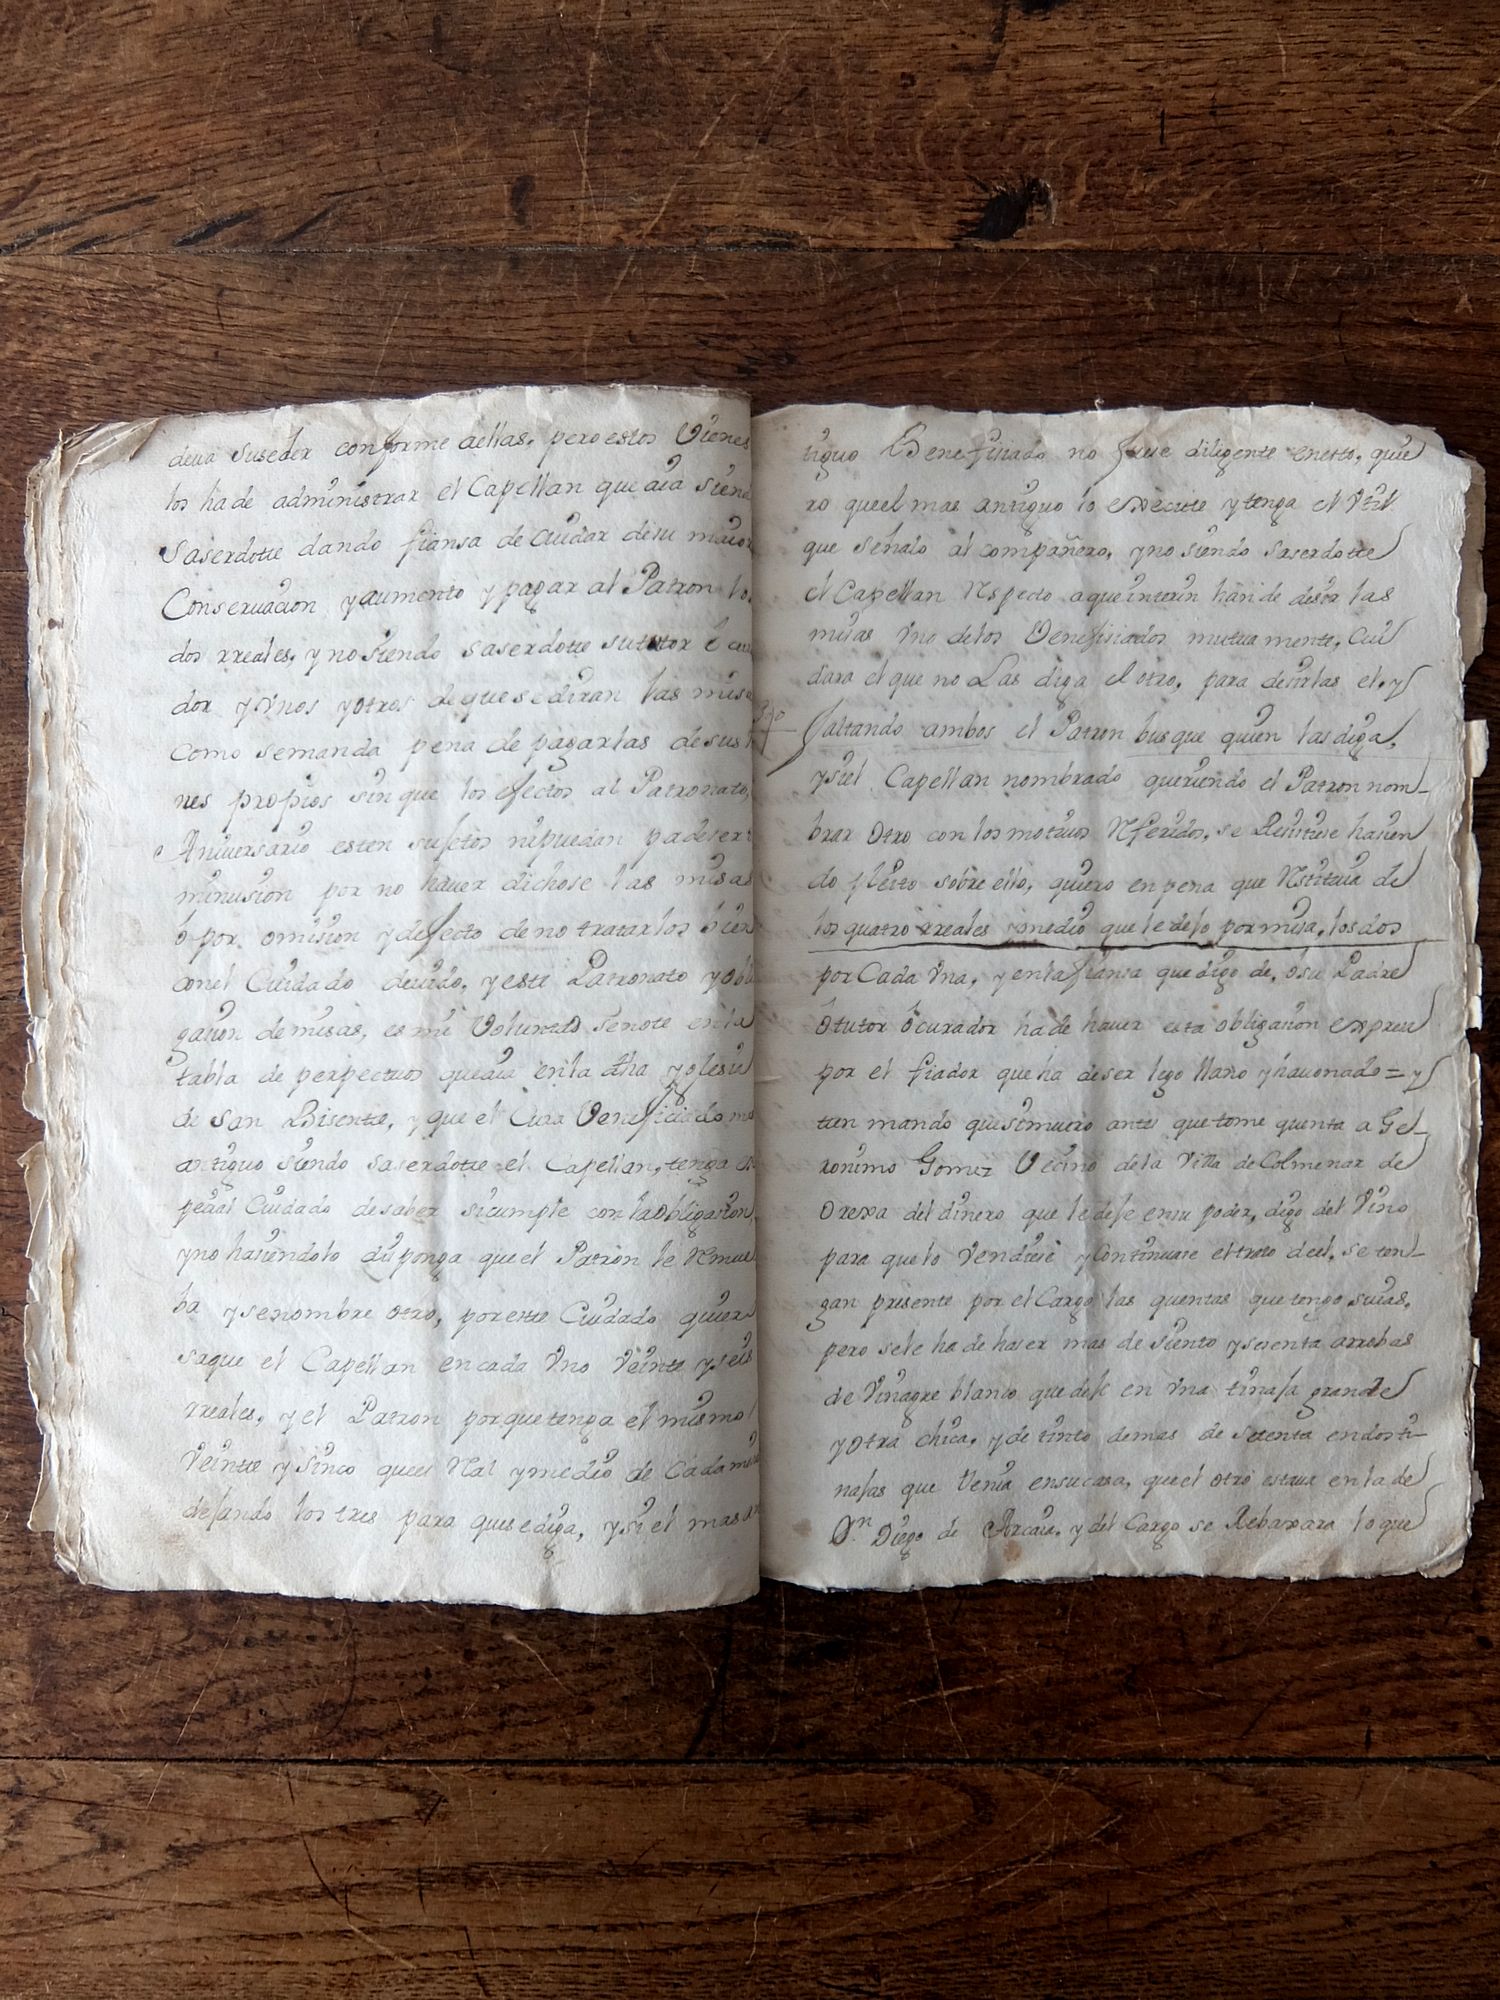 deua suseder conforme aellas, pero estos Vienes
los ha de administrar el Capellan que aia siend
Saserdotte dando fiansa de Cuidar desu maior
Conseruacion y aumento y pagar al Patron los
dos rreales, y no siendo saserdotte su tutor ô cu
dor y Vnos y otros de que se diran las misa
como se manda pena de pagarlas de sus
nes propios sin que los efectos al Patronato,
Aniuersario esten sujetos ni puedan padeser
minusion por no hauer dichose las misas
ô por omision y defecto de no tratarlos bien
conel Cuidado deuido, y este Patronato y obli
gasion de misas, es mi Voluntad se note en la
tabla de perpectuos que aia en la dha yglesia
de San Bisente, y que el Cura Venefisiado mas
antiguo siendo saserdotte el Capellan, tenga es
pesial Cuidado de saber si cumple con la obligasion,
y no hasiendolo disponga que el Patron le Remue
ba y se nombre otro, por este Cuidado quiero
saque el Capellan en cada Vno Veinte y seis
rreales, y el Patron porque tenga el mismo
Veinte y sinco que es Real y medio de Cada misa
dejando los tres para que se diga, y si el mas an
tiguo Benefisiado no fuere diligente en esto, quie
ro que el mas antiguo lo execute y tenga el Vtil
que señalo al compañero, y no siendo saserdotte
el Capellan Respecto a que interin han de desir las
misas Vno de los Venefisiados mutuamente, Cui
dara el que no Las diga el otro, para desirlas el, y
faltando ambos el Patron busque quien las diga,
y si el Capellan nombrado queriendo el Patron nom-
brar otro con los motiuos Referidos, se Resistiese hasien
do pleito sobre ello, quiero en pena que Restituia de
los quatro rreales y medio que le dejo por misa, los dos
por Cada Vna, y en la fiansa que digo de, ô su Padre
ô tutor ô curador ha de hauer esta obligasion expresa
por el fiador que ha de ser lego llano y hauonado = y
tten mando que si muero antes que tome quenta a Ge-
ronimo Gomez Vecino de la Villa de Colmenar de
Orexa del dinero que le deje en su poder, digo del Vino
para que lo Vendiese y Continuase el trato de el, se ten-
gan presente por el Cargo las quentas que tengo suias,
pero se le ha de haser mas de siento y sesenta arrobas
de Vinagre blanco que deje en Vna tinaja grande
y otra chica, y de tinto de mas de setenta en dos ti-
najas que tenia en su casa, que el otro estaua en la de
Dn Diego de Arcaia, y del Cargo se Rebaxara lo que